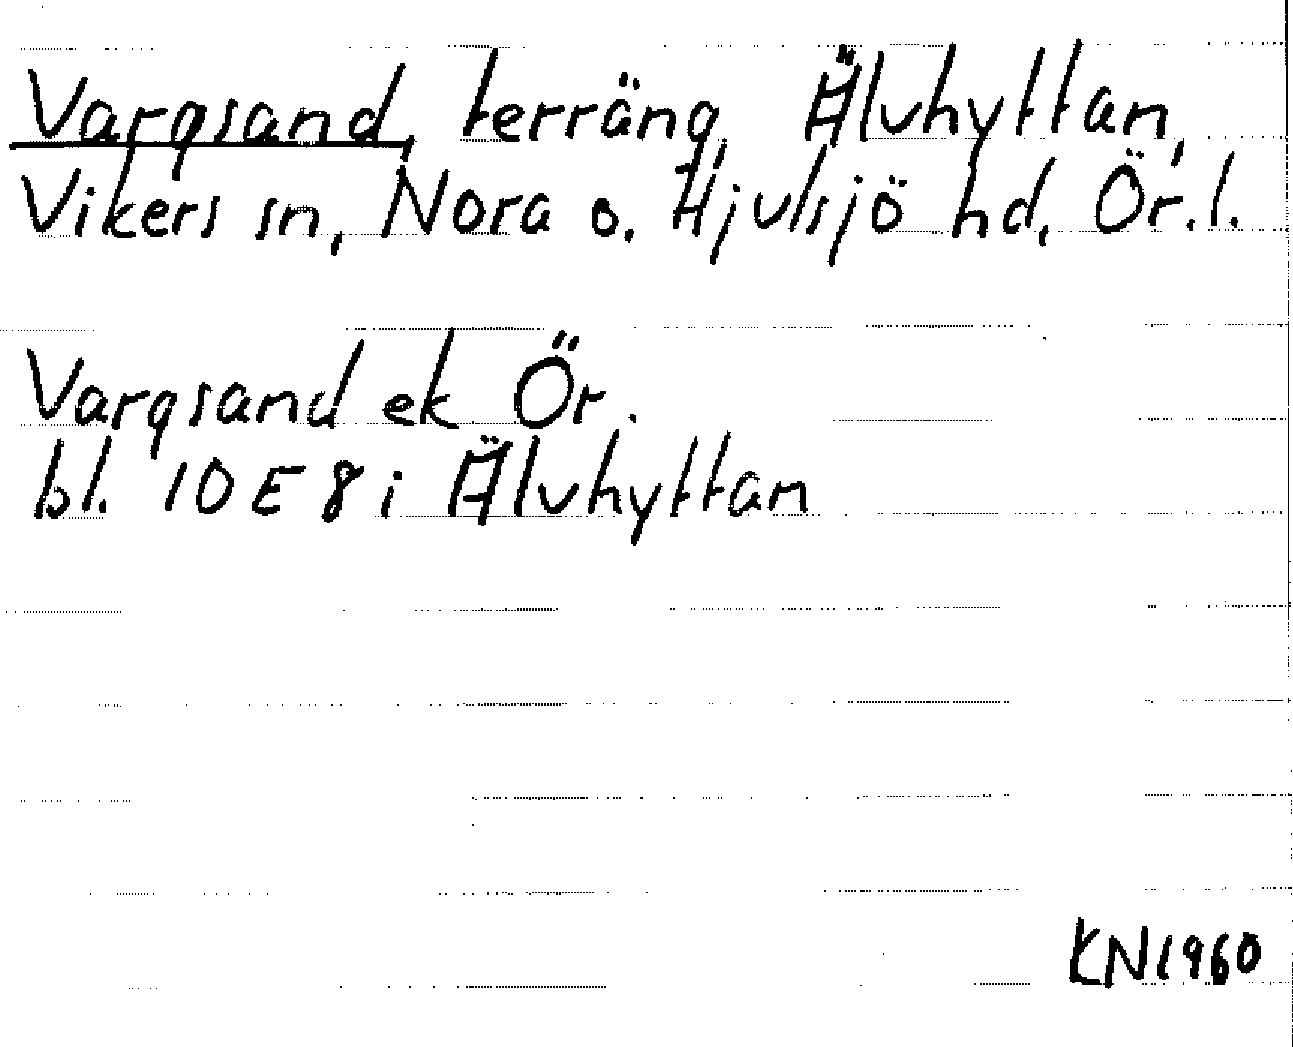 Vargsand, terräng, Älvhyttan,
Vikers sn, Nora o. Hjulsjö hd, Ör. l.
Vargsand ek Ör.
bl. 10 E 8 i Älvhyttan
KN 1960